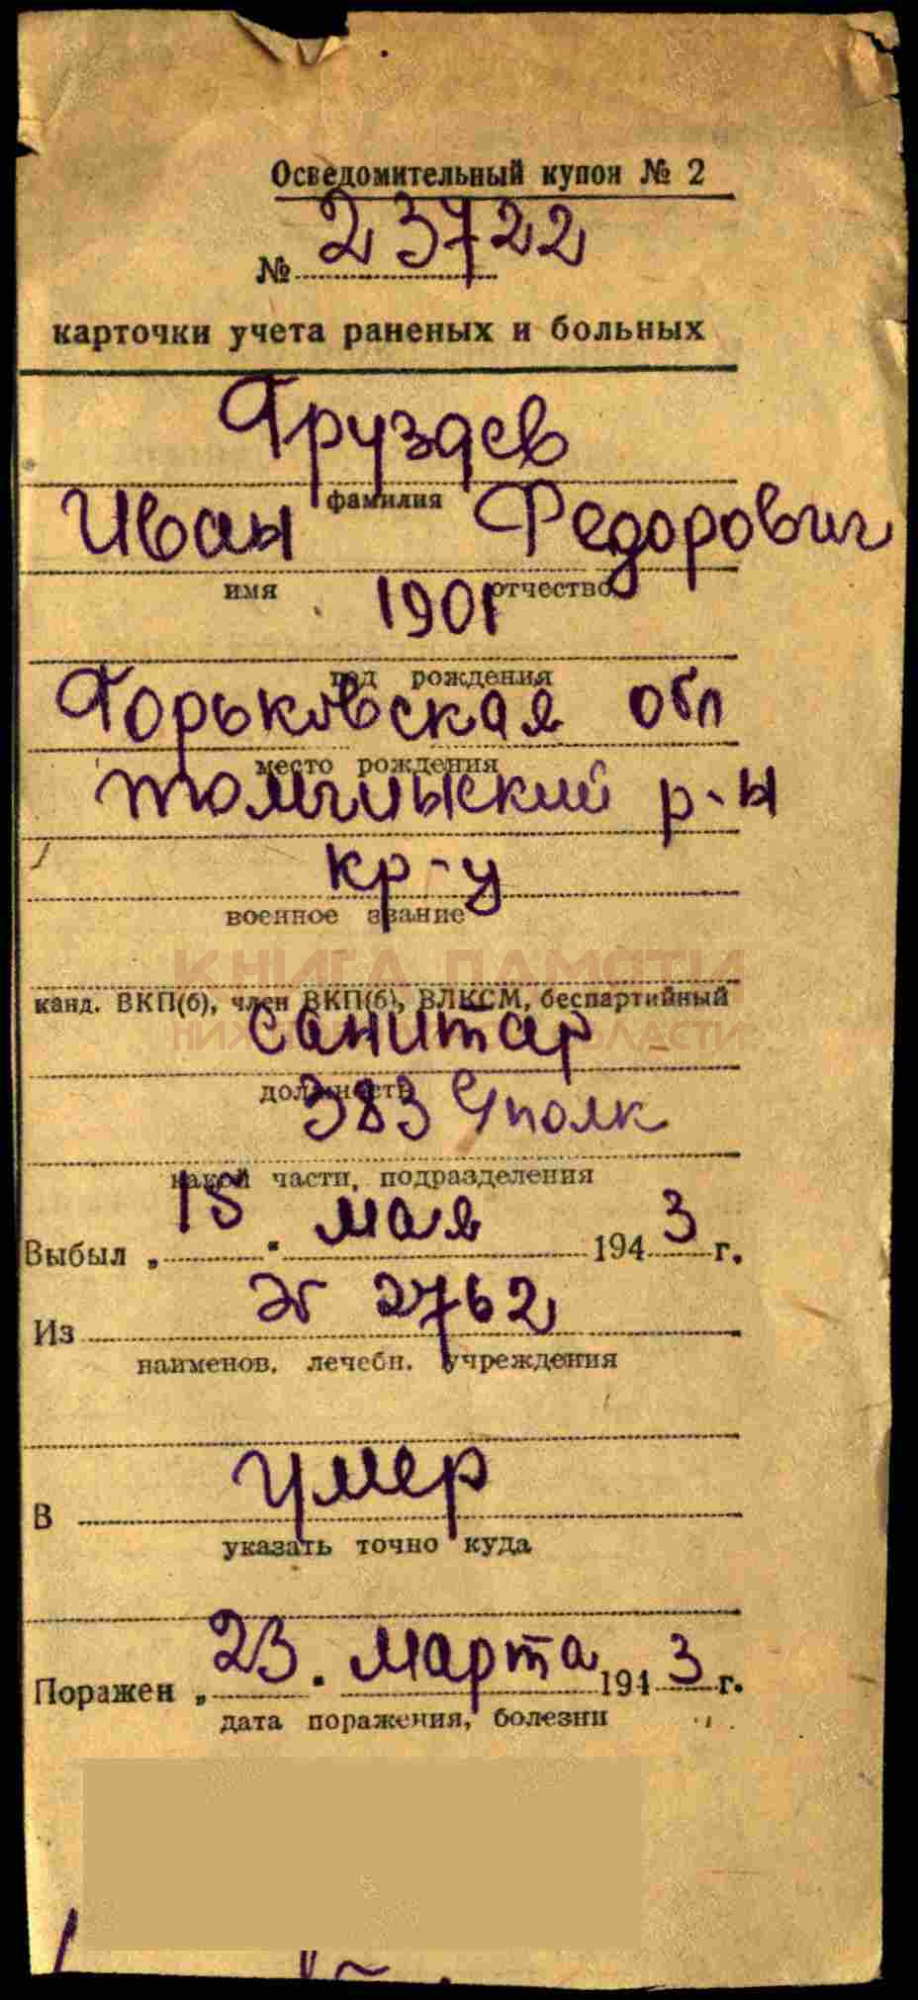 Осведомительный купон № 2
№ 23722
карточки учета раненых и больных
Груздев
фамилия
Иван Федорович
имя отчество
1901
год рождения
Горьковская обл
место рождения
р-н
кр-ц
военное звание
КНИГА ПАМЯТИ
канд. ВКП(б), член ВКП(б), ВЛКСМ, беспартийный
НИЖЕГОРОДСКОЙ ОБЛАСТИ
санитар
должность
383 полк
какой части, подразделения
Выбыл „ 15 " мая 1943 г.
Из эг 2762
наименов. лечебн. учреждения
В умер
указать точно куда
Поражен „ 23 " марта 1943 г.
дата поражения, болезни